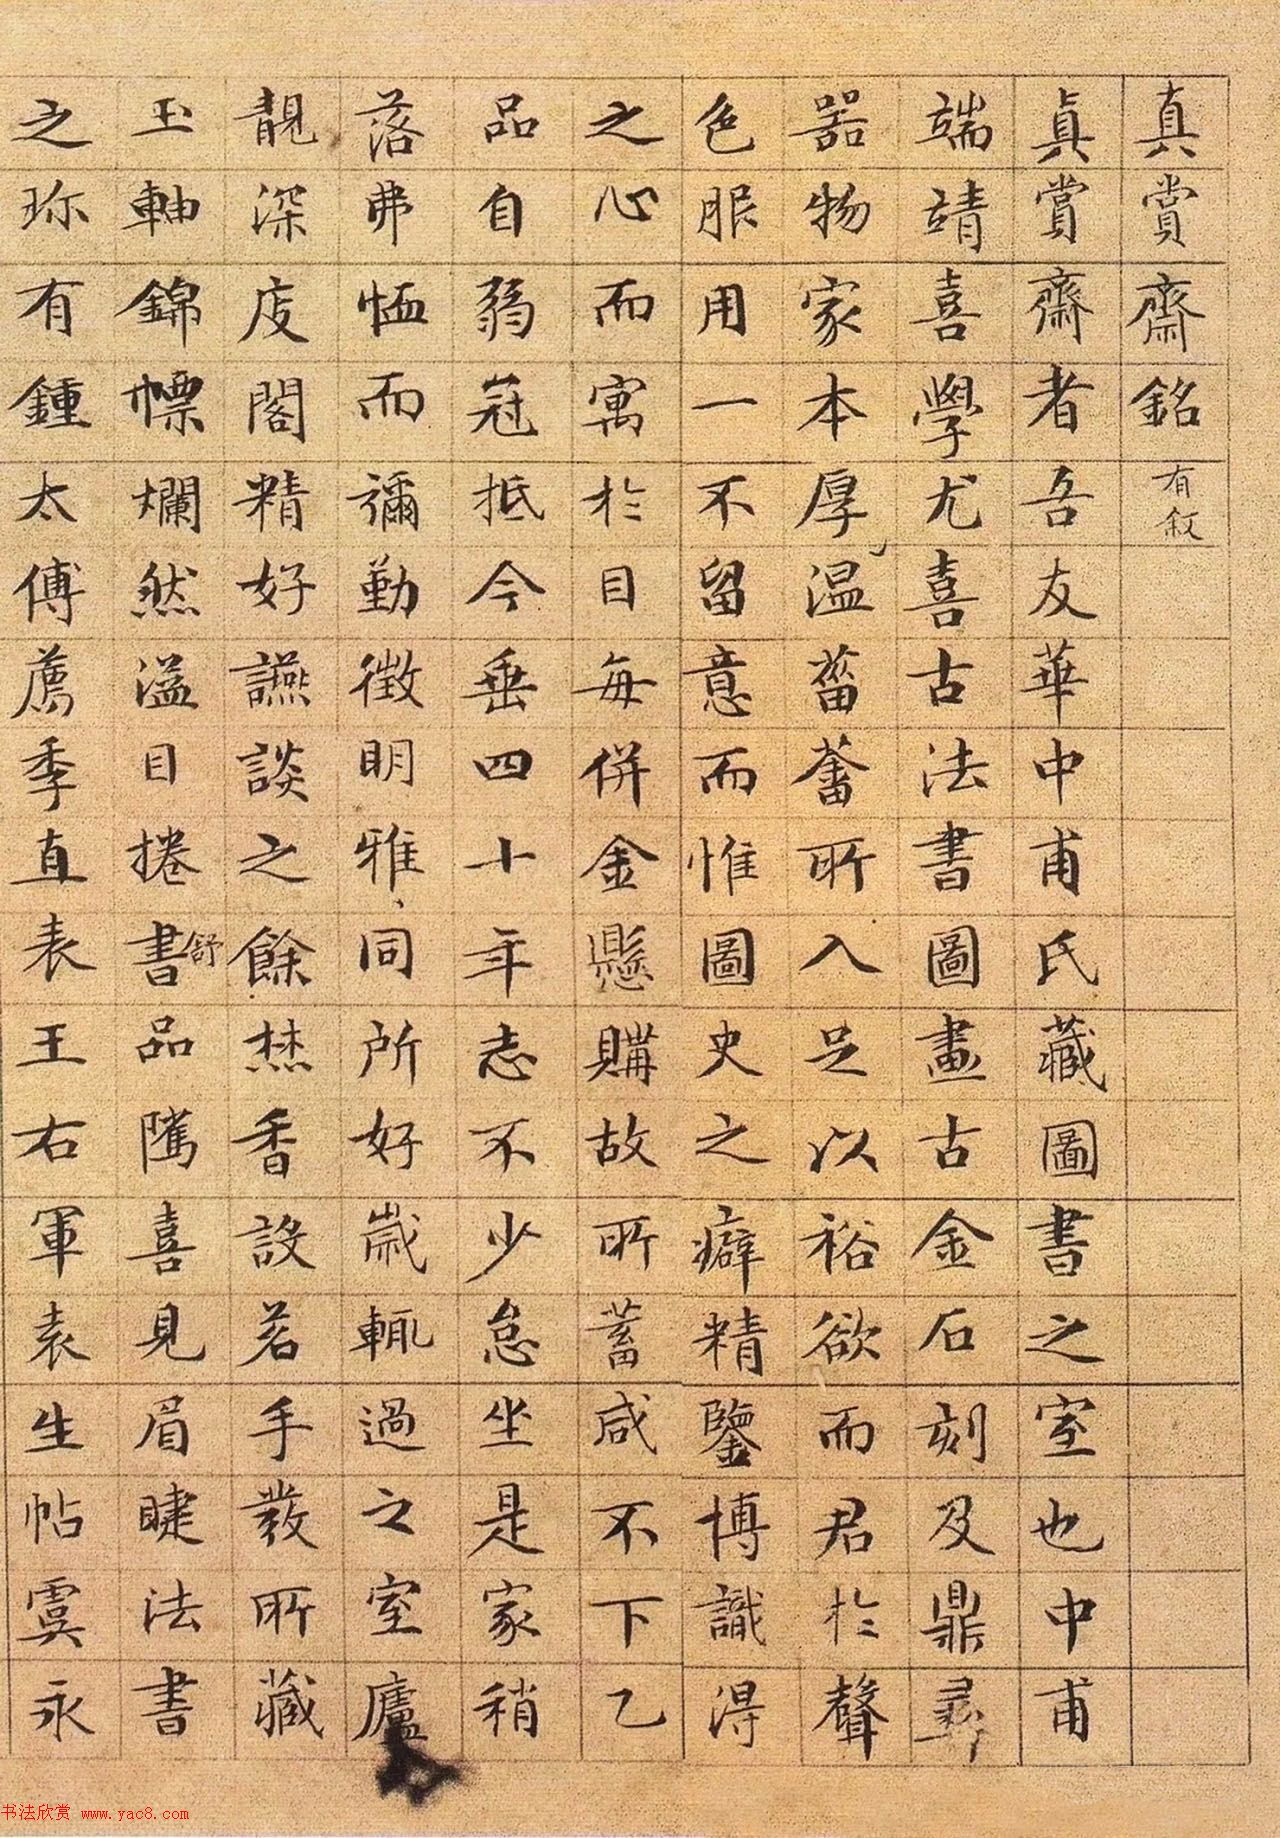 真賞齋銘有敘
真賞齋者吾友華中甫氏藏圖書之室也中甫
端靖喜學尤喜古法書圖畫古金石刻及鼎彝
器物家本厚溫菑畬所入足以裕欲而君於聲
色服用一不留意而惟圖史之癖精鑒博識得
之心而寓於目每併金懸購故所蓄咸不下乙
品自弱冠抵今垂四十年志不少怠坐是家稍
落弗恤而彌勤徵明雅同所好歲輒過之室廬
靚深庋閣精好讌談之餘焚香設茗手發所藏
玉軸錦幖爛然溢目捲舒品隲喜見眉睫法書
之珎有鍾太傅薦季直表王右軍袁生帖虞永
书法欣赏 www.yac8.com